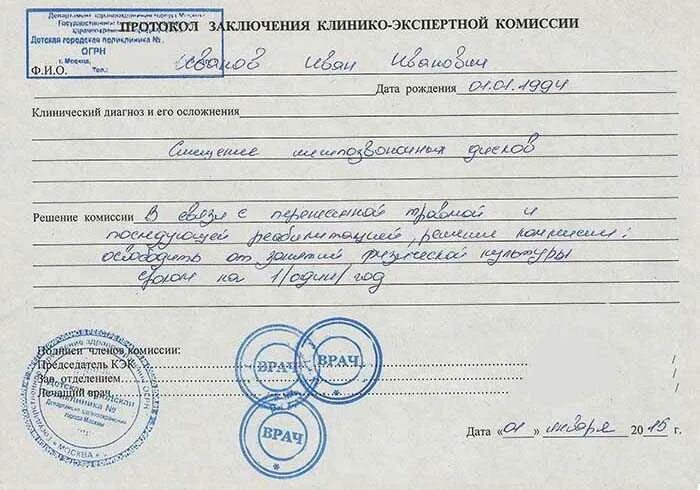 Департамент здравоохранения города Москвы
Государственное бюджетное
здравоохранения
Детская городская поликлиника №
ОГРН
г. Москва,
Тел.:
ПРОТОКОЛ ЗАКЛЮЧЕНИЯ КЛИНИКО-ЭКСПЕРТНОЙ КОМИССИИ
Ф.И.О. Иванов Иван Иванович
Дата рождения 01.01.1994
Клинический диагноз и его осложнения
Смещение межпозвоночных дисков
Решение комиссии В связи с перенесенной травмой и
последующей реабилитацией, решение комиссии:
освободить от занятий физической культуры
сроком на 1/один/год
Подписи членов комиссии:
Председатель КЭК
Зав. отделением
Лечащий врач
ВРАЧ
ВРАЧ
ВРАЧ
Детской городской
поликлиника №
Департамент здравоохранения
города Москвы
МОСКВА
Дата «01» января 2015 г.